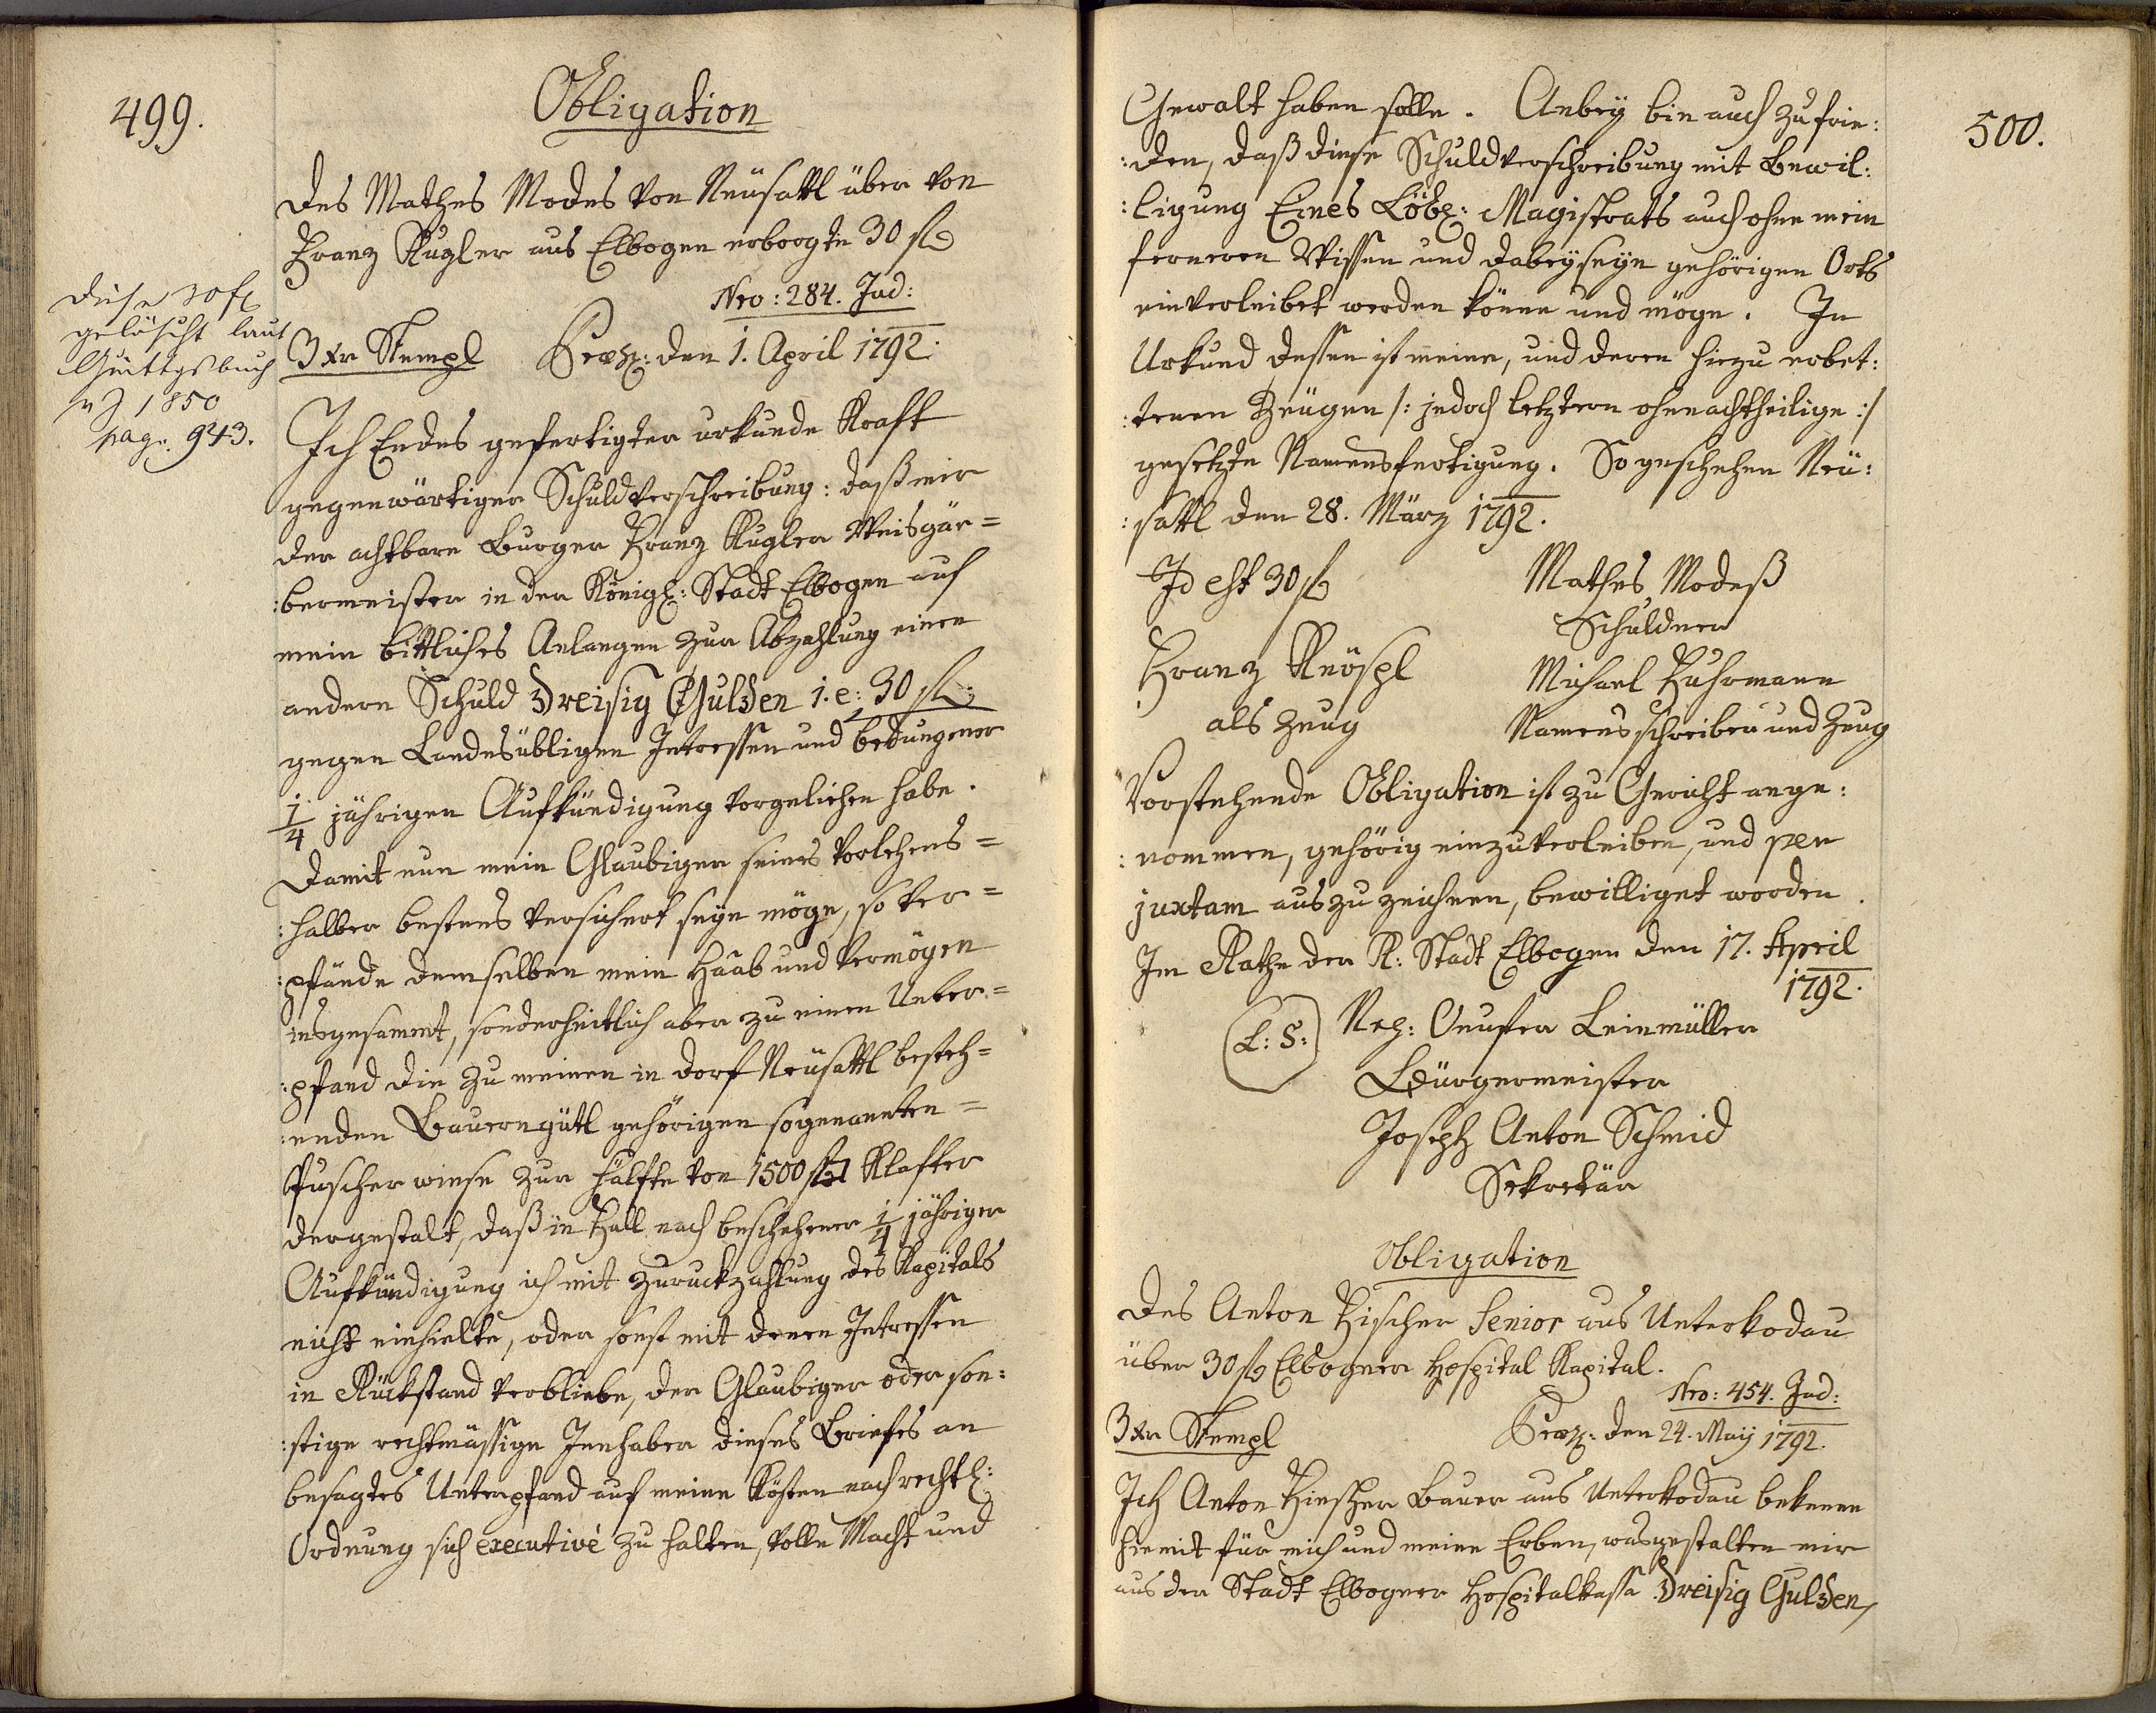 499.
Obligation
des Mathes Modes von Neüsattl über von
Franz Kugler aus Elbogen erborgte 30 fl
Nro: 284. Jud:
3 xr Stempl Praes: den 1. April 1792.
diese 30 fl
gelöscht laut
Quittgsbuch
1850
pag. 943.
Ich Endes gefertigter urkunde Kraft
gegenwärtiger Schuldverschreibung: daß mir
der achtbare Burger Franz Kugler Weisgär=
:bermeister in der Königl: Stadt Elbogen auf
mein bittliches Anlangen zur Abzahlung einer
andern Schuld Dreisig Gulden i. e: 30 fl:
gegen Landesübligen Intressen und bedungener
1/4 jährigen Aufkündigung vorgeliehen habe.
Damit nun mein Glaubiger seines Vorlehens=
:halber bestens versichert seyn möge, so ver=
:pfände demselben mein Haab und Vermögen
insgesammt, sonderheitlich aber zu einen Unter=
:pfand die zu meinen in Dorf Neüsattl besteh=
:enden Bauerngütl gehörigen sogenannten=
Puscher wiese zur Hälfte von 1500 Klafter
dergestalt, daß in Fall nach beschehener 1/4 jähriger
Aufkündigung ich mit Zuruckzahlung des Kapitals
nicht einhielte, oder sonst mit denen Intressen
in Rückstand verbliebe, der Glaubiger oder son:
:stige rechtmässige Innhaber dieses Briefes an
besagtes Unterpfand auf meine Kösten nach rechtl:
Ordnung sich executivè zu halten, volle Macht und
500.
Gewalt haben solle. Anbey bin auch zufrie:
:den, daß diese Schuldverschreibung mit Bewil:
:ligung Eines Löbl: Magistrats auch ohne mein
ferneren Wissen und Dabeyseyn gehörigen Orts
einverleibet werden könne und möge. In
Urkund dessen ist meine, und deren hiezu erbet:
:tenen Zeügen /: jedoch letztern ohnnachtheilige :/
gesetzte Namensfertigung. So geschehen Neü:
:sattl den 28. März 1792.
Id est 30 fl
Mathes Modeß
Schuldner
Franz Knöspl
als Zeug
Michael Fuhrmann
Namensschreiber und Zeug
Vorstehende Obligation ist zu Gericht ange:
:nommen, gehörig einzuverleiben, und per
juxtam auszuzeichnen, bewilliget worden.
Im Rathe der K: Stadt Elbogen den 17. April
1792.
L: S:
Onufer Leinmüller
Bürgermeister
Joseph Anton Schmid
Sekretär
Obligation
des Anton Fischer Senior aus Unterkodau
über 30 fl Elbogner Hospital Kapital.
Nro: 454. Jud:
3 xr Stempl Praes: den 24. Maij 1792.
Ich Anton Fischer Bauer aus Unterkodau bekenne
hiemit für mich und meine Erben, wasgestalten mir
aus der Stadt Elbogner Hospitalkassa Dreisig Gulden,